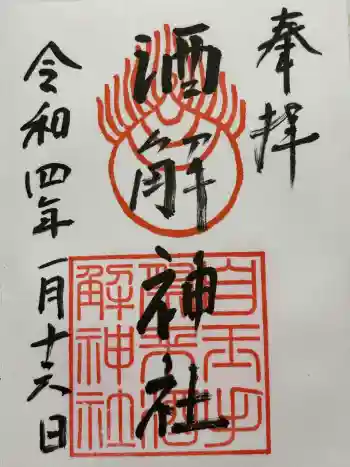 奉拝
酒解神社
令和四年一月十六日
自玉手
祭来酒
解神社